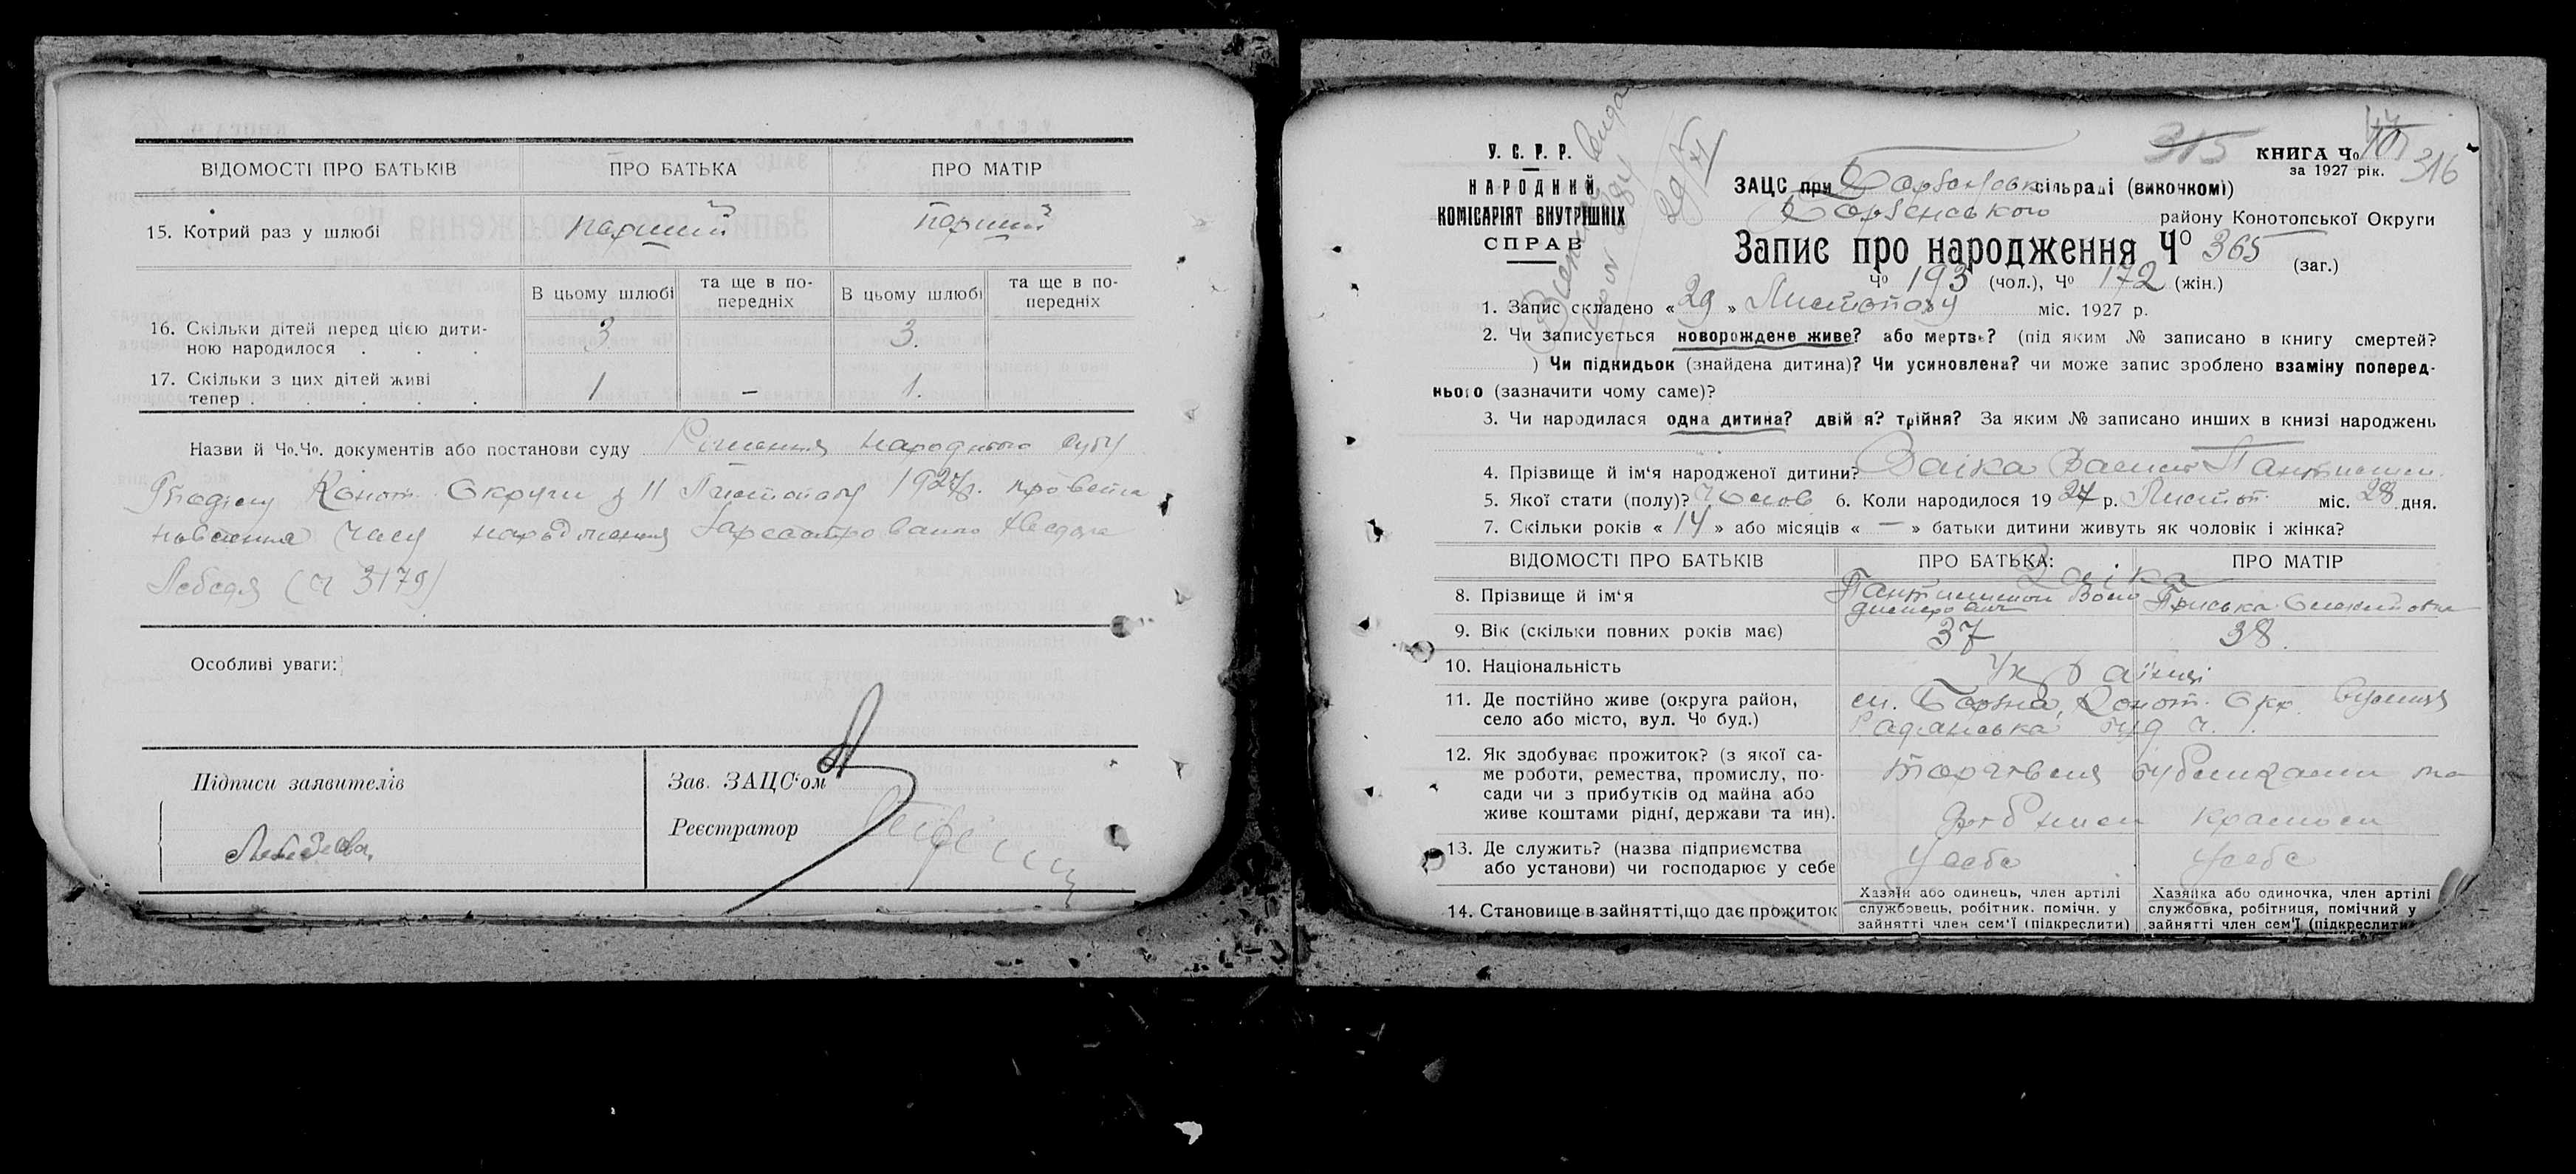 ВІДОМОСТІ ПРО БАТЬКІВ ПРО БАТЬКА ПРО МАТІР
15. Котрий раз у шлюбі перший перший
В цьому шлюбі та ще в по-передніх В цьому шлюбі та ще в по-передніх
16. Скільки дітей перед цією дити-
ною народилося . . . 3 3.
17. Скільки з цих дітей живі
тепер . . . . . 1 – 1.
Назви й Чо.Чо. документів або постанови суду Рішення народнього суду
Конот. Округи з 11 Листопаду 1927р. про
часу народження
Лебедя (Ч 3179)
Особливі уваги:
Підписи заявителів
Зав. ЗАЦС'ом
Реєстратор
Лебедева
У. С. Р. Р.
НАРОДНИЙ
КОМІСАРІЯТ ВНУТРІШНІХ
СПРАВ
29/XI
315
КНИГА Чо
за 1927 рік. 316
ЗАЦС при сільраді (викочкомі)
Борзенського району Конотопської Округи
Запис про народження Чо 365 (заг.)
Чо 193 (чол.), Чо 172 (жін.)
1. Запис складено « 29 » Листопаду міс. 1927 р.
2. Чи записується новорождене живе? або мертве? (під яким № записано в книгу смертей?
) Чи підкидьок (знайдена дитина)? Чи усиновлена? чи може запис зроблено взаміну поперед-
нього (зазначити чому саме)?
3. Чи народилася одна дитина? двійя? трійня? За яким № записано инших в книзі народжень
4. Прізвище й ім'я народженої дитини? Заіка
5. Якої стати (полу)? Чолов 6. Коли народилося 1927 р. Листоп. міс. 28 дня.
7. Скільки років « 14 » або місяців « — » батьки дитини живуть як чоловік і жінка?
ВІДОМОСТІ ПРО БАТЬКІВ ПРО БАТЬКА: ПРО МАТІР
Заіка
8. Прізвище й ім'я Пантилимон Воло Приська
димирович
9. Вік (скільки повних років має) 37 38.
10. Національність Українці
11. Де постійно живе (округа район, м. Борзна, Конот. Окр. вулиця
село або місто, вул. Чо буд.) Радянська буд ч. 1.
12. Як здобуває прожиток? (з якої са- Торгівля бубликами та
ме роботи, ремества, промислу, по-
сади чи з прибутків од майна або
живе коштами рідні, держави та ин). дрібним крамом
13. Де служить? (назва підприємства
або установи) чи господарює у себе У себе У себе
14. Становище в зайнятті, що дає прожиток
Хазяїн або одинець, член артілі
службовець, робітник. помічн. у
зайнятті член сем'ї (підкреслити)
Хазяйка або одиночка, член артілі
службовка, робітниця, помічний у
зайнятті член сем'ї (підкреслити)